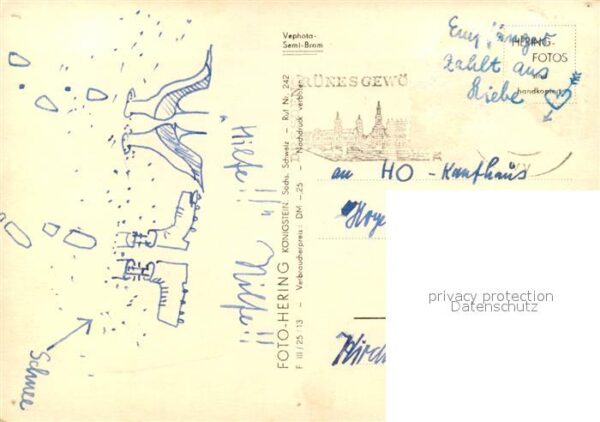 Vephota-
Semi-Brom
HERING-
FOTOS
handkopiert
Empfänger
zahlt aus
Liebe
GRÜNES GEWÖ
an HO - Kaufhaus
Hoye
Kirch
"Hilfe!!"
Hilfe!!
Schnee
FOTO-HERING KÖNIGSTEIN, Sächs. Schweiz - Ruf Nr. 242
F III/25/13 - Verbraucherpreis: DM -.25 - Nachdruck verboten
privacy protection
Datenschutz